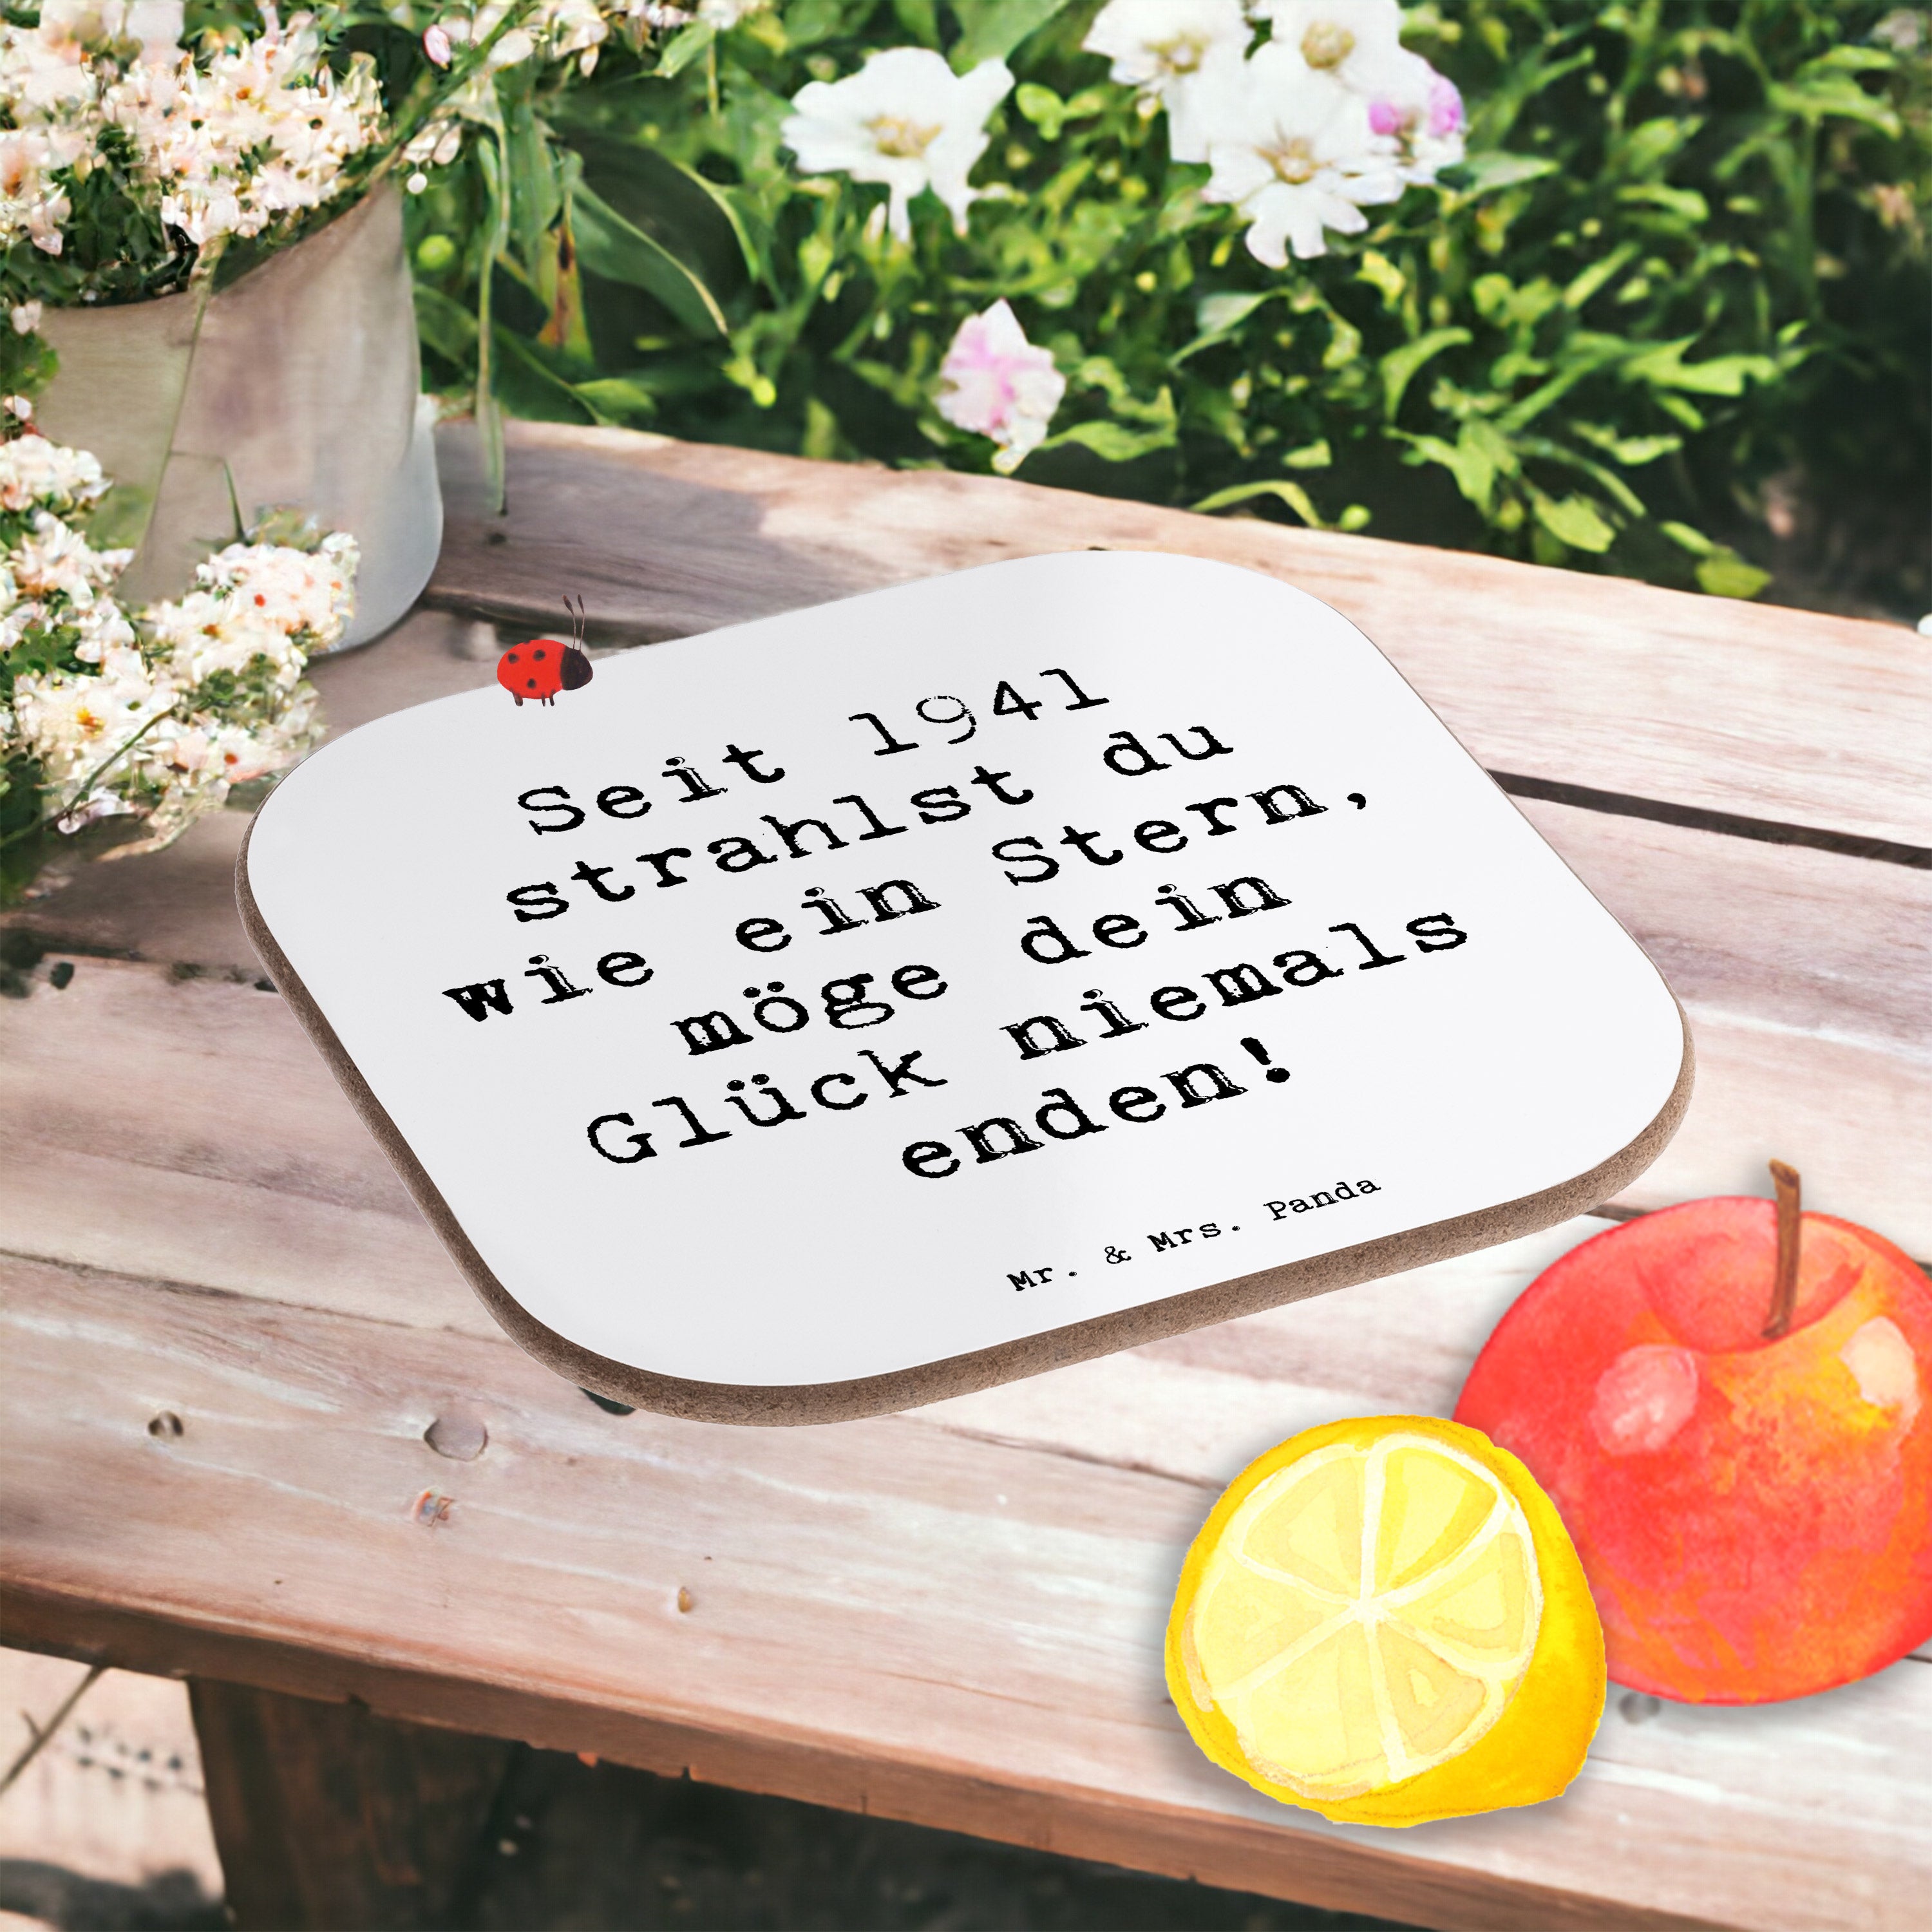 Seit 1941
strahlst du
wie ein Stern,
möge dein
Glück niemals
enden!
Mr. & Mrs. Panda